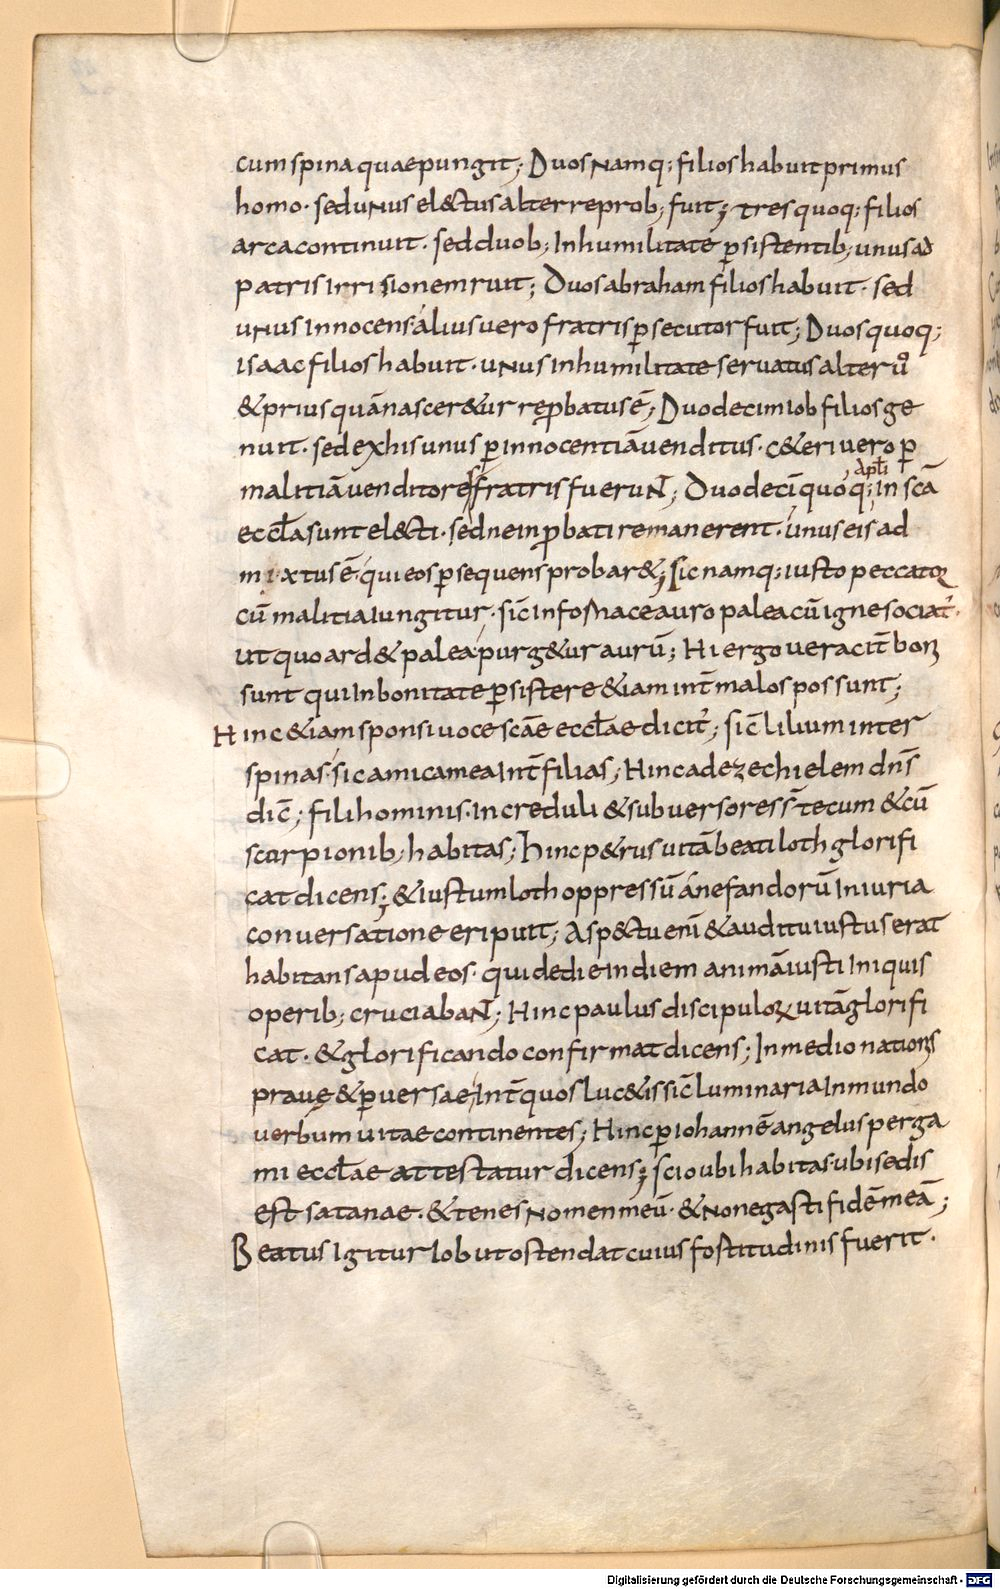 cum spina quae pungit; Duos namq; filios habuit primus
homo· sed unus el&tus alter reprob; fuit; tres quoq; filios
arca continuit· sed duob; In humilitate ꝑsistentib; unus ad
patris irrisionem ruit; Duos abraham filios habuit· sed
unus Innocens alius uero fratris ꝑsecutor fuit; Duos quoq;
isaac filios habuit· unus In humilitate seruatus alter uͦ
& prius quā nascer&ur reꝓbatus ē; Duodecim iob filios ge
nuit· sed ex his unus ꝑ innocentiā uenditus· c&eri uero ꝑ
malitiā uenditores fratris fuerunt; Duodecī quoq; apl̄i in scā
eccl̄a sunt el&ti· sed ne inꝓbati remanerent· unus eis ad
mixtus ē· qui eos ꝑsequens probar&; Sic namq; iusto peccatoꝝ
cū malitia Iungitur· sic̄ In fornace auro palea cū igne sociat᷒·
ut quo ard& palea purg&ur aurū; Hi ergo ueracit̄ boni
sunt qui In bonitate ꝑsistere &iam int̄ malos possunt;
Hinc &iam sponsi uoce scāe eccl̄ae dicit᷒; sic̄ lilium inter
spinas· sic amica mea Int̄ filias; Hinc ad ezechielem dn̄s
dic̄; fili hominis· Increduli & subuersores s̄ tecum & cū
scorpionib; habitas; Hinc p&rus uitā beati loth glorifi
cat dicens; & iustum loth oppressū a nefandorū Iniuria
conuersatione eripuit; Asp&tu enī & auditu iustus erat
habitans apud eos· qui de die In diem animā iusti Iniquis
operib; cruciabant; Hinc paulus discipuloꝝ uitā glorifi
cat· & glorificando confirmat dicens; In medio nationis
praue & ꝑuersae; Int̄ quos luc&is sic̄ luminaria In mundo
uerbum uitae continentes; Hinc ꝑ iohannē angelus perga
mi eccl̄ae attestatur dicens; scio ubi habitas ubi sedis
est satanae· & tenes nomen meū· & non negasti fidē meā;
Beatus Igitur Iob ut ostendat cuius fostitudinis fuerit·
Digitalisierung gefördert durch die Deutsche Forschungsgemeinschaft - DFG